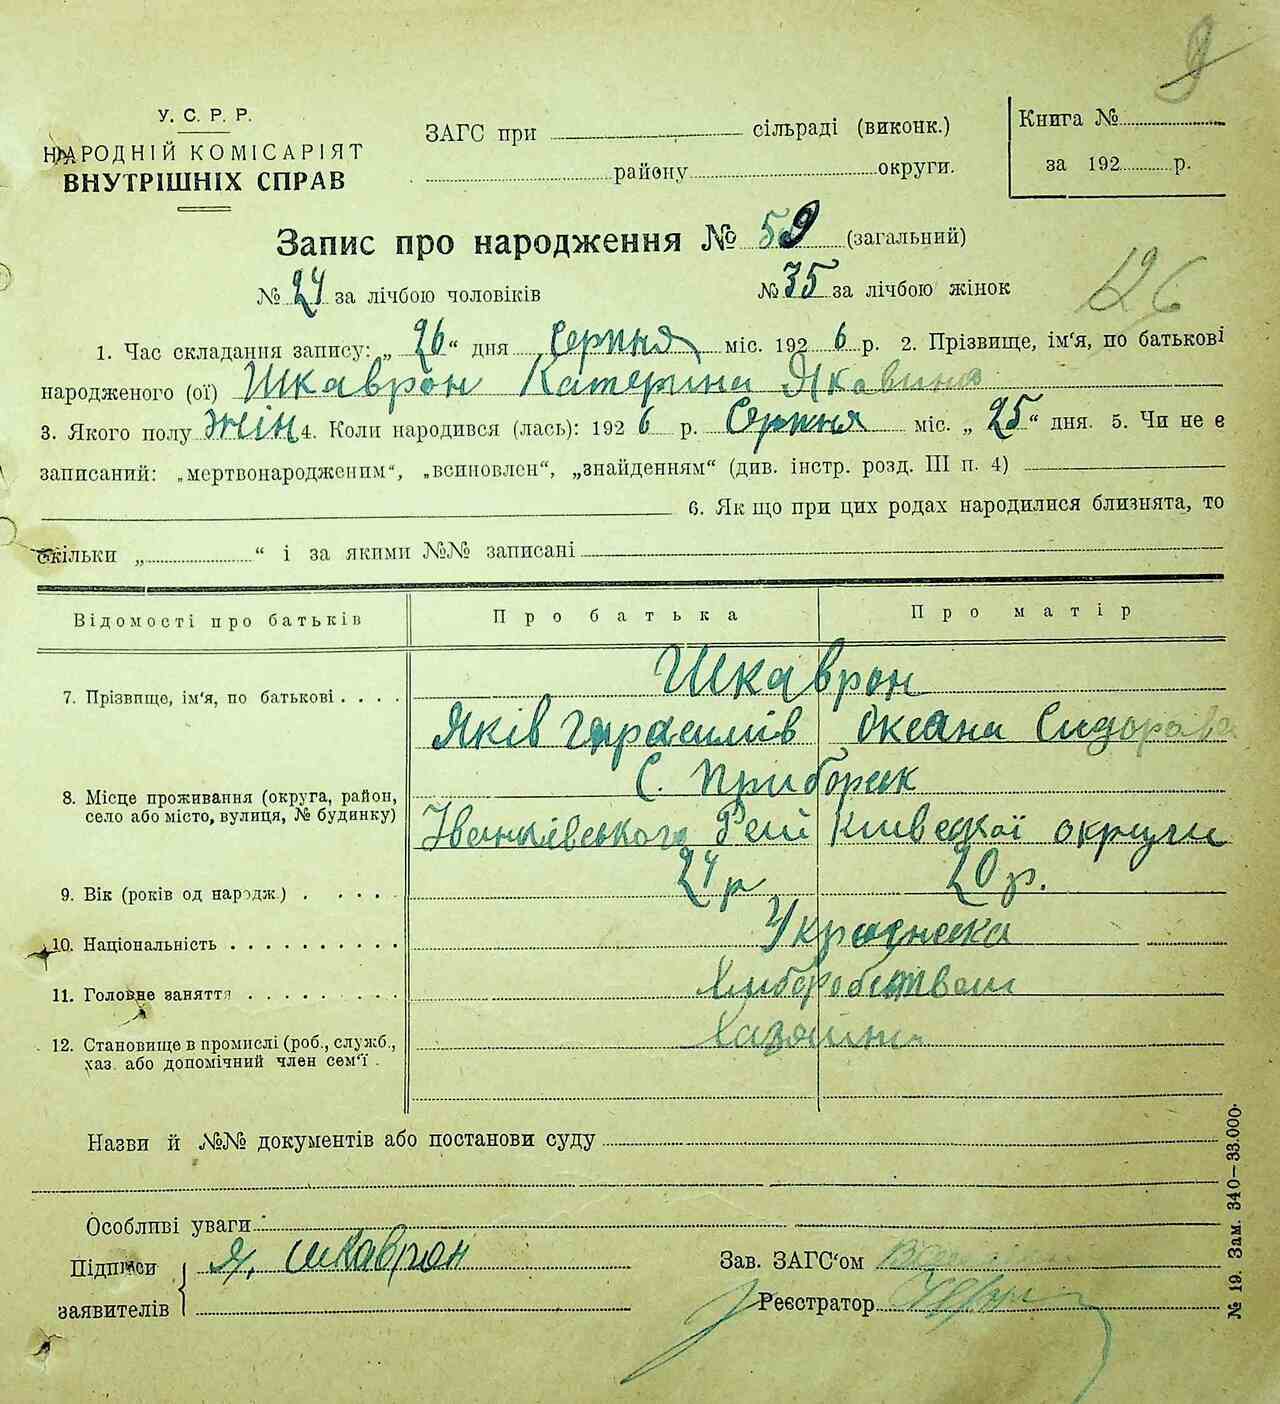 9
У. С. Р. Р.
НАРОДНІЙ КОМІСАРІЯТ
ВНУТРІШНІХ СПРАВ
ЗАГС при сільраді (виконк.)
району округи.
Книга №
за 192 р.
Запис про народження № 59 (загальний)
№ 24 за лічбою чоловіків № 35 за лічбою жінок
126
1. Час складання запису: „ 26 “ дня Серпня міс. 192 6 р. 2. Прізвище, ім‘я, по батькові
народженого (ої) Шкаврон Катерина Якавина
3. Якого полу жін 4. Коли народився (лась): 192 6 р. Серпня міс. „ 25 “ дня. 5. Чи не є
записаний: „мертвонародженим“, „всиновлен“, „знайденням“ (див. інстр. розд. III п. 4)
6. Як що при цих родах народилися близнята, то
скільки „ “ і за якими №№ записані
Відомості про батьків Про батька Про матір
7. Прізвище, ім‘я, по батькові . . . . Шкаврон
Яків Гарасимів Оксана Сидорова
8. Місце проживання (округа, район, село або місто, вулиця, № будинку) С. Приборськ
Київської округи
9. Вік (років од народж.) . . . . . 24 р 20 р.
10. Національність . . . . . . . . . . Украінска
11. Головне заняття . . . . . . . . . Хліборобством
12. Становище в промислі (роб., служб., хаз. або допомічний член сем‘ї . Хазяїни
Назви й №№ документів або постанови суду
Особливі уваги
Підписи заявителів Я. Шкаврон
Зав. ЗАГС‘ом
Реєстратор
№ 19. Зам. 340–33.000.